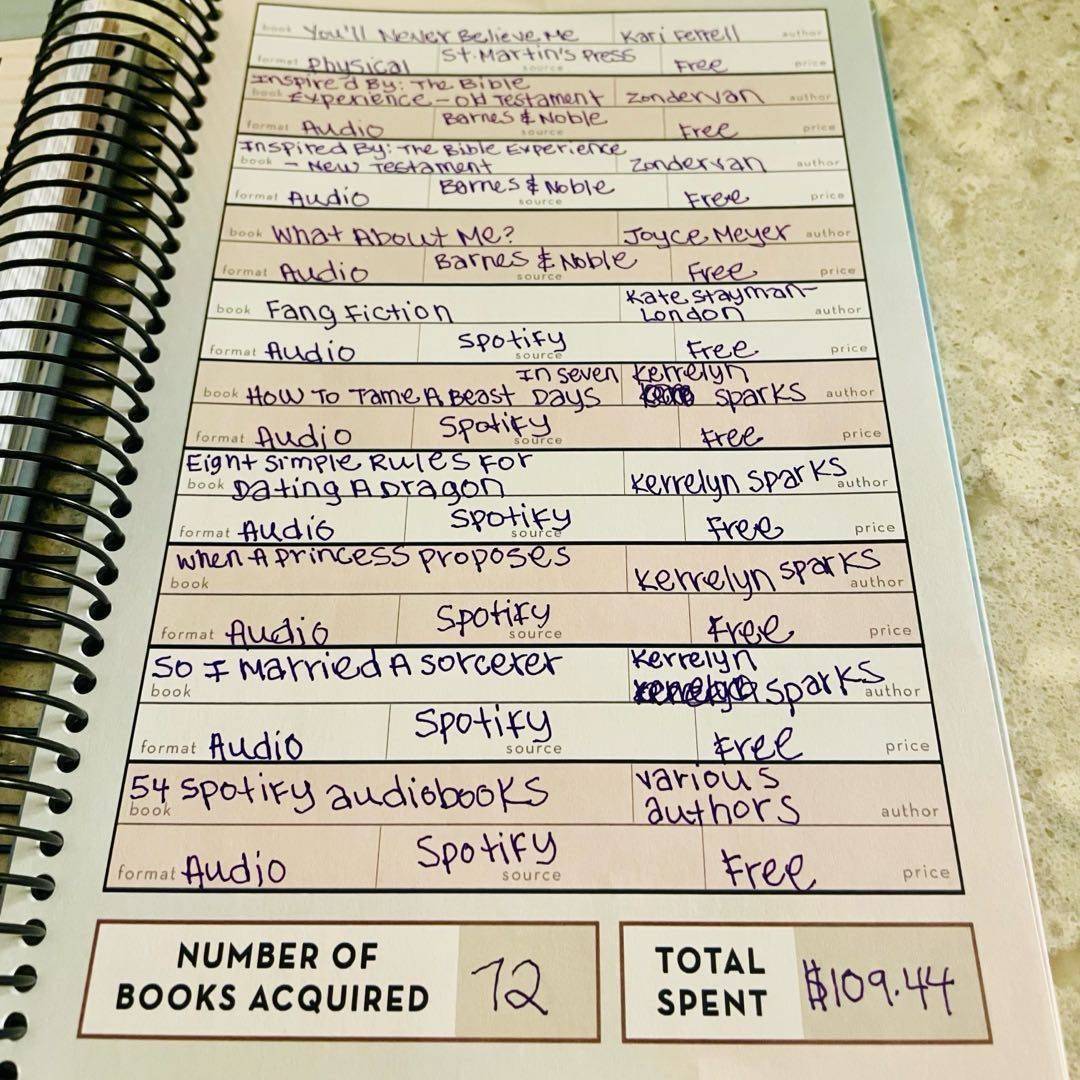 book You'll Never Believe Me Kari Ferrell author
format Physical St. Martin's Press source Free price
Inspired By: The Bible
book Experience - Old Testament Zondervan author
format Audio Barnes & Noble source Free price
Inspired By: The Bible Experience
book - New Testament Zondervan author
format Audio Barnes & Noble source Free price
book What About Me? Joyce Meyer author
format Audio Barnes & Noble source Free price
book Fang Fiction Kate Stayman-
London author
format Audio Spotify source Free price
In Seven Kerrelyn
book How To Tame A Beast Days Sparks author
format Audio Spotify source Free price
Eight Simple Rules For
book Dating A Dragon Kerrelyn Sparks author
format Audio Spotify source Free price
When A Princess Proposes
book Kerrelyn Sparks author
format Audio Spotify source Free price
So I Married A Sorcerer Kerrelyn
book Sparks author
format Audio Spotify source Free price
54 Spotify audiobooks various
book authors author
format Audio Spotify source Free price
NUMBER OF
BOOKS ACQUIRED 72
TOTAL
SPENT $109.44